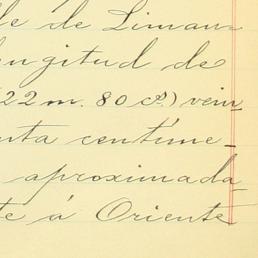 lle de Liman-
longitud de
(22 m. 80 cs.) vein-
nta centíme-
aproximada
te á Oriente